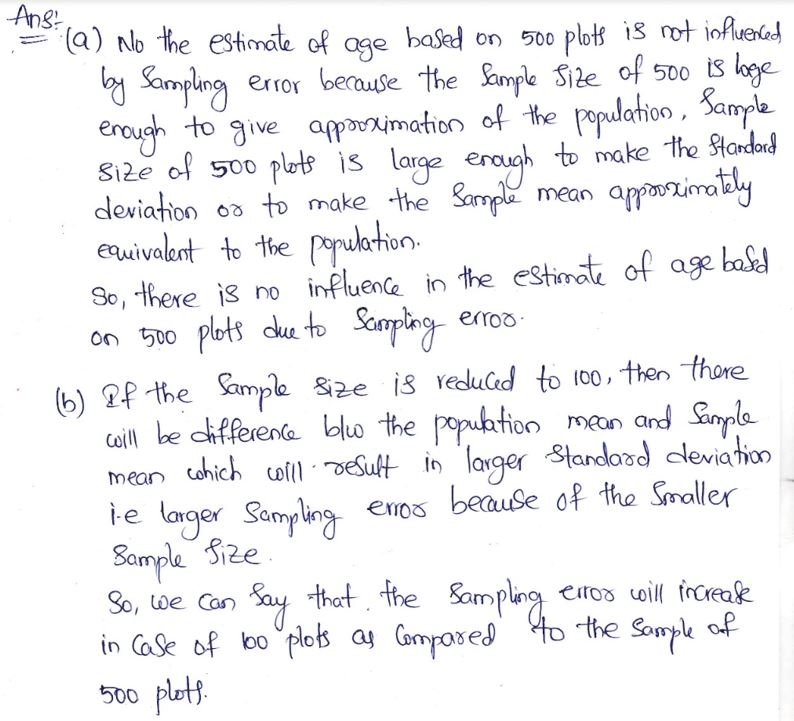 Ans:
(a) No the estimate of age based on 500 plots is not influenced
by Sampling error because the Sample Size of 500 is large
enough to give approximation of the population, Sample
size of 500 plots is large enough to make the Standard
deviation or to make the Sample mean approximately
equivalent to the population.
So, there is no influence in the estimate of age based
on 500 plots due to Sampling error.
(b) If the Sample size is reduced to 100, then there
will be difference b/w the population mean and Sample
mean which will result in larger Standard deviation
i.e larger Sampling error because of the Smaller
Sample Size.
So, we can Say that the Sampling error will increase
in Case of 100 plots as Compared to the Sample of
500 plots.